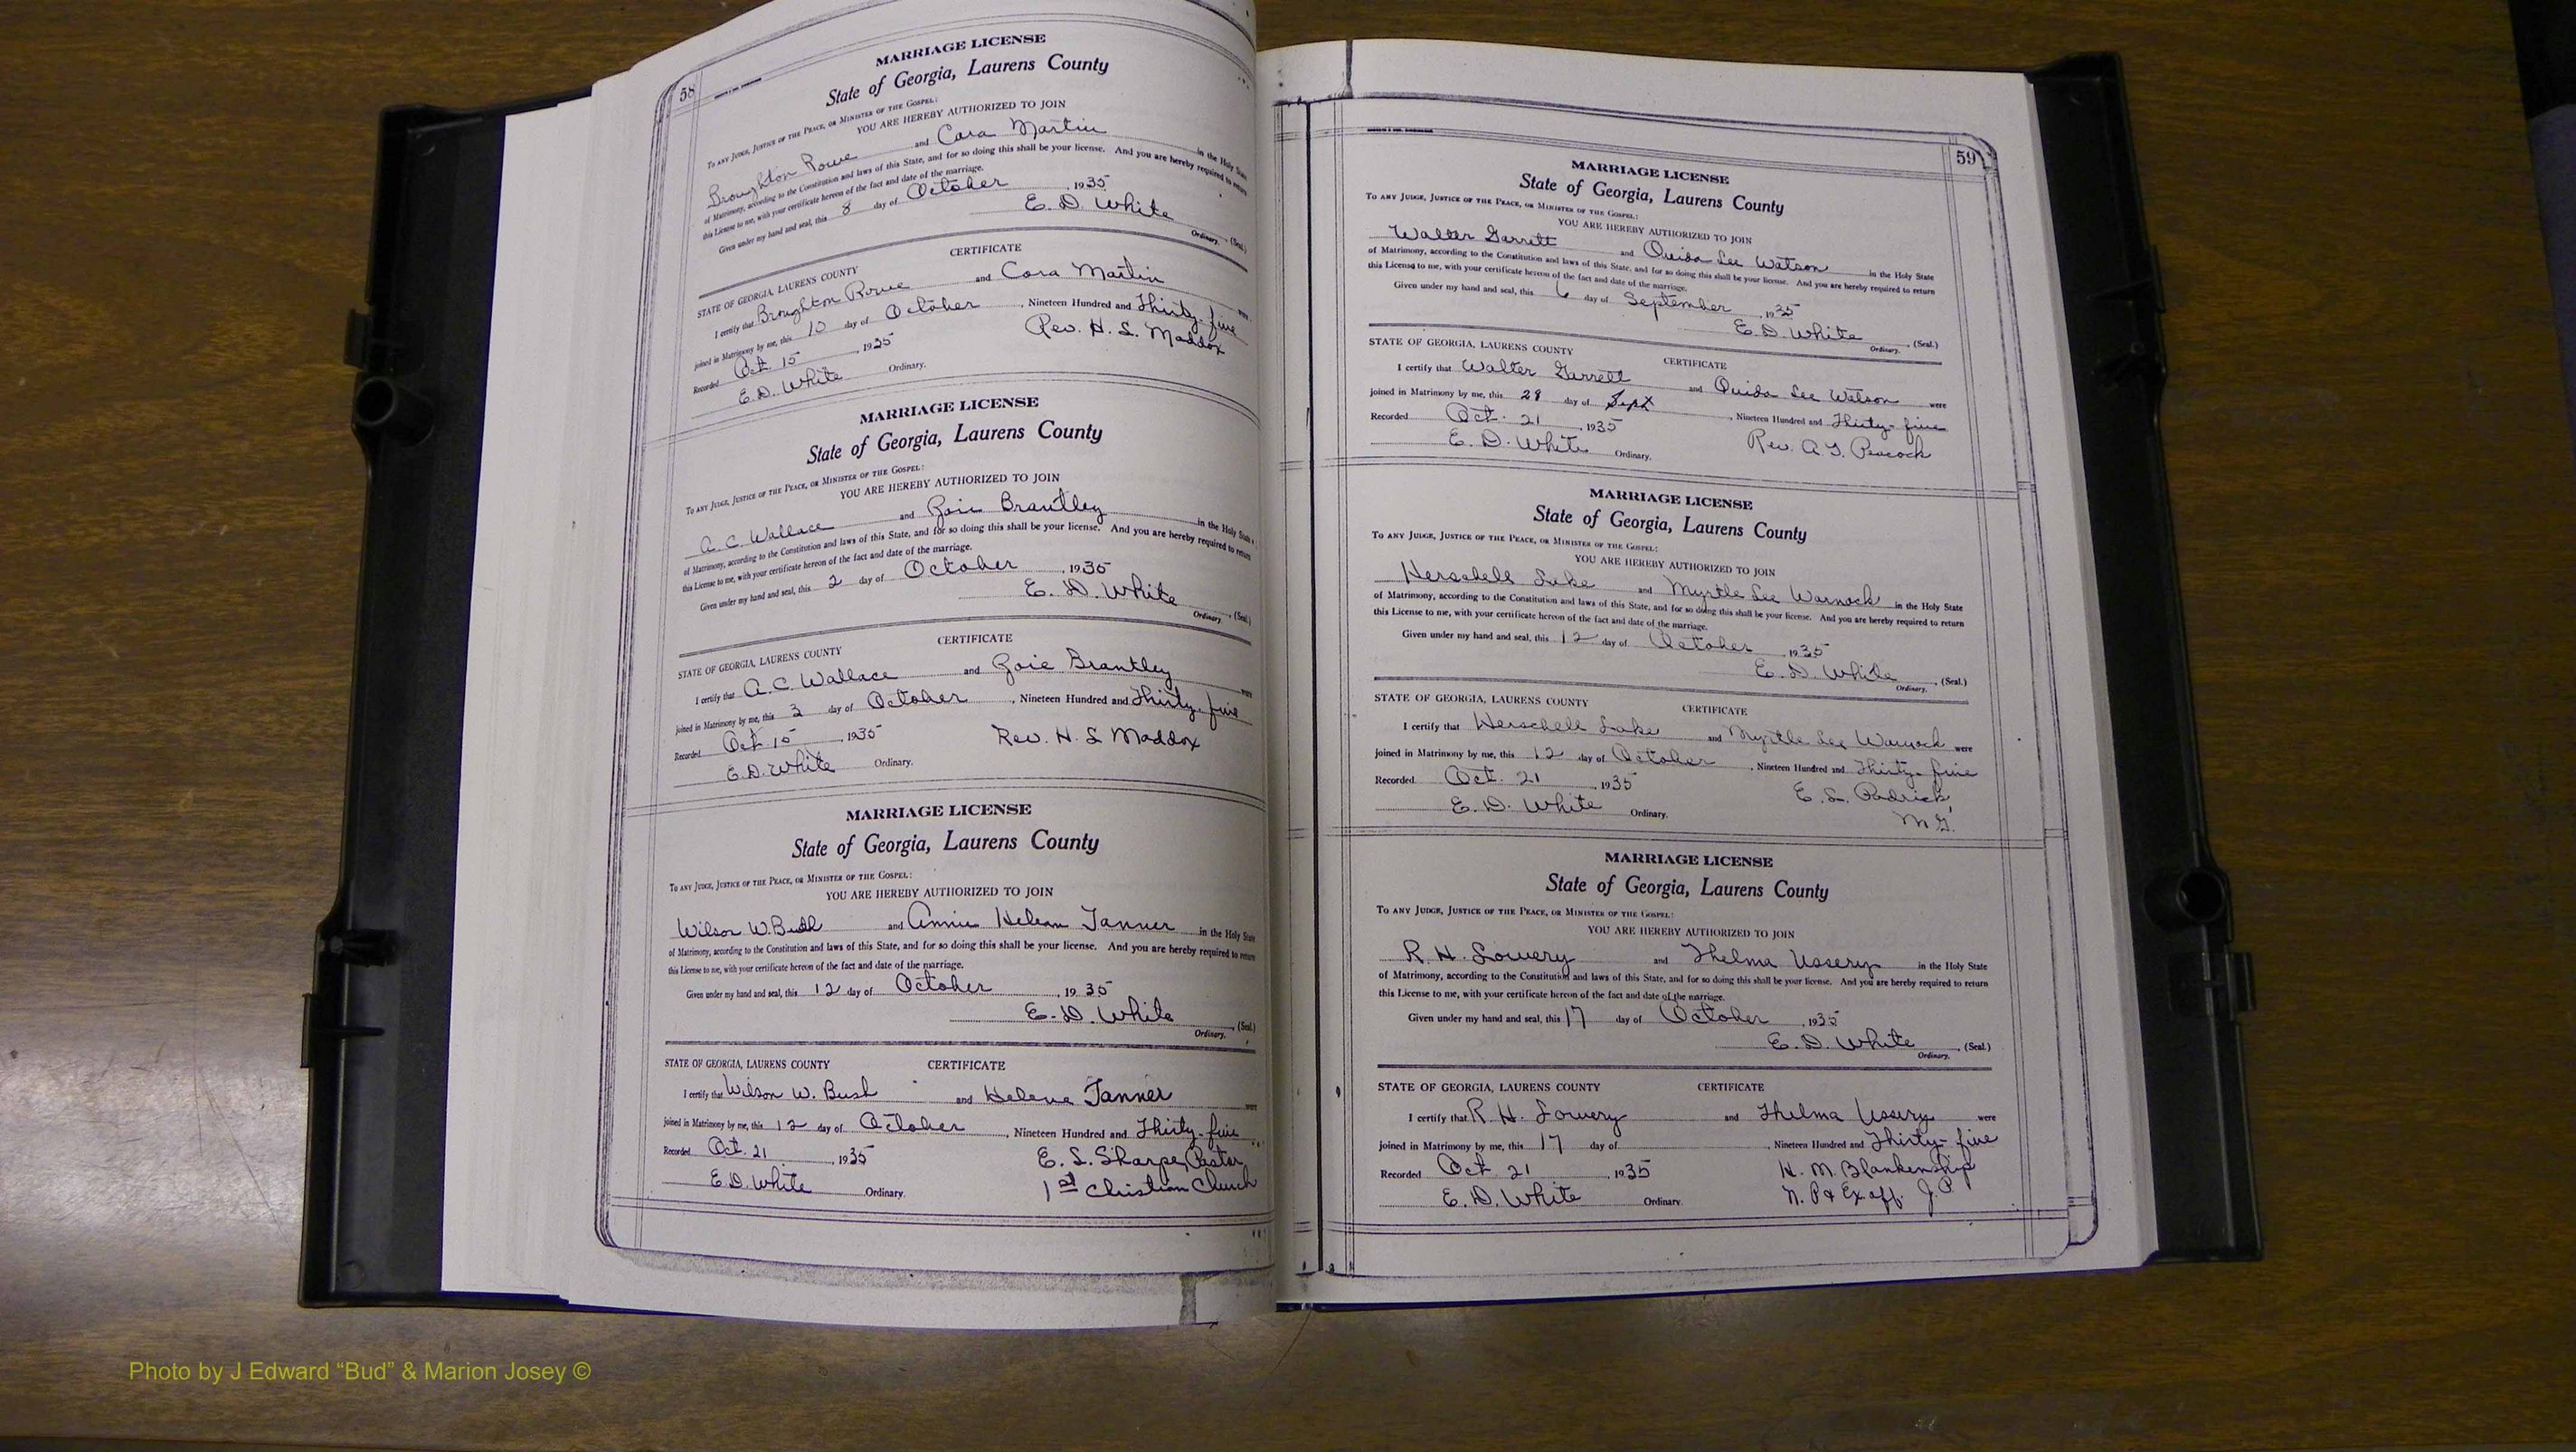 58
MARRIAGE LICENSE
State of Georgia, Laurens County
To any Judge, Justice of the Peace, or Minister of the Gospel:
YOU ARE HEREBY AUTHORIZED TO JOIN
Broughton Rowe and Cora Martin in the Holy State
of Matrimony, according to the Constitution and laws of this State, and for so doing this shall be your license. And you are hereby required to return
this License to me, with your certificate hereon of the fact and date of the marriage.
Given under my hand and seal, this 8 day of October, 1935
E. D. White (Seal.)
Ordinary.
CERTIFICATE
STATE OF GEORGIA, LAURENS COUNTY
I certify that Broughton Rowe and Cora Martin were
joined in Matrimony by me, this 10 day of October, Nineteen Hundred and Thirty-five
Recorded Oct. 15, 1935 Rev. H. S. Maddox
E. D. White Ordinary.
MARRIAGE LICENSE
State of Georgia, Laurens County
To any Judge, Justice of the Peace, or Minister of the Gospel:
YOU ARE HEREBY AUTHORIZED TO JOIN
A. C. Wallace and Brantley in the Holy State
of Matrimony, according to the Constitution and laws of this State, and for so doing this shall be your license. And you are hereby required to return
this License to me, with your certificate hereon of the fact and date of the marriage.
Given under my hand and seal, this 2 day of October, 1935
E. D. White (Seal.)
Ordinary.
CERTIFICATE
STATE OF GEORGIA, LAURENS COUNTY
I certify that A. C. Wallace and Brantley were
joined in Matrimony by me, this day of October, Nineteen Hundred and Thirty-five
Recorded Oct 15, 1935 Rev. H. S Maddox
E. D. White Ordinary.
MARRIAGE LICENSE
State of Georgia, Laurens County
To any Judge, Justice of the Peace, or Minister of the Gospel:
YOU ARE HEREBY AUTHORIZED TO JOIN
Wilson W. and Annie Helean Tanner in the Holy State
of Matrimony, according to the Constitution and laws of this State, and for so doing this shall be your license. And you are hereby required to return
this License to me, with your certificate hereon of the fact and date of the marriage.
Given under my hand and seal, this 12 day of October, 1935
E. D. White (Seal.)
Ordinary.
STATE OF GEORGIA, LAURENS COUNTY CERTIFICATE
I certify that Wilson W. Bush and Helene Tanner were
joined in Matrimony by me, this 12 day of October, Nineteen Hundred and Thirty-five
Recorded Oct. 21, 1935 E. S. Sharpe, Pastor
E. D. White Ordinary. 1st Christian Church
59
MARRIAGE LICENSE
State of Georgia, Laurens County
To any Judge, Justice of the Peace, or Minister of the Gospel:
YOU ARE HEREBY AUTHORIZED TO JOIN
Walter Garrett and Ouida Lee Watson in the Holy State
of Matrimony, according to the Constitution and laws of this State, and for so doing this shall be your license. And you are hereby required to return
this License to me, with your certificate hereon of the fact and date of the marriage.
Given under my hand and seal, this 6 day of September, 1935
E. D. White (Seal.)
Ordinary.
STATE OF GEORGIA, LAURENS COUNTY CERTIFICATE
I certify that Walter Garrett and Ouida Lee Watson were
joined in Matrimony by me, this day of Sept, Nineteen Hundred and Thirty-five
Recorded Oct. 21, 1935 Rev. Peacock
E. D. White Ordinary.
MARRIAGE LICENSE
State of Georgia, Laurens County
To any Judge, Justice of the Peace, or Minister of the Gospel:
YOU ARE HEREBY AUTHORIZED TO JOIN
Herschell Lake and Myrtle Lee Warnock in the Holy State
of Matrimony, according to the Constitution and laws of this State, and for so doing this shall be your license. And you are hereby required to return
this License to me, with your certificate hereon of the fact and date of the marriage.
Given under my hand and seal, this 12 day of October, 1935
E. D. White (Seal.)
Ordinary.
STATE OF GEORGIA, LAURENS COUNTY CERTIFICATE
I certify that Herschell Lake and Myrtle Lee Warnock were
joined in Matrimony by me, this 12 day of October, Nineteen Hundred and Thirty-five
Recorded Oct. 21, 1935 E. L. Padrick,
E. D. White Ordinary. M G.
MARRIAGE LICENSE
State of Georgia, Laurens County
To any Judge, Justice of the Peace, or Minister of the Gospel:
YOU ARE HEREBY AUTHORIZED TO JOIN
R. H. Lowery and Thelma Ussery in the Holy State
of Matrimony, according to the Constitution and laws of this State, and for so doing this shall be your license. And you are hereby required to return
this License to me, with your certificate hereon of the fact and date of the marriage.
Given under my hand and seal, this 17 day of October, 1935
E. D. White (Seal.)
Ordinary.
STATE OF GEORGIA, LAURENS COUNTY CERTIFICATE
I certify that R. H. Lowery and Thelma Ussery were
joined in Matrimony by me, this 17 day of, Nineteen Hundred and Thirty-five
Recorded Oct. 21, 1935 H. M. Blankenship
E. D. White Ordinary. N. P & Ex off. J. P.
Photo by J Edward “Bud” & Marion Josey ©